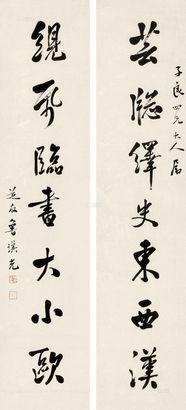 子良四兄大人屬
芸牕繹史東西漢
臨書大小歐
芝友魯琪光